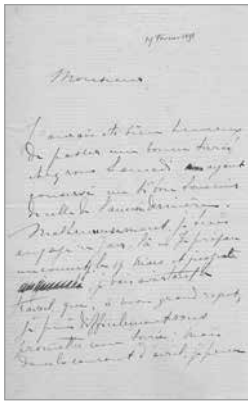 Février
Monsieur
J'aurais été bien heureux
de passer une bonne soirée
chez vous Samedi ayant
conservé un si bon souvenir
de celle de l'année dernière.
Malheureusement, je suis
engagé ce jour là. Je prépare
un concert, le 19 Mars et jusque là
je suis
travail que, à mon grand regret,
je puis difficilement vous
promettre une soirée; mais
dans le courant d'avril, je pense